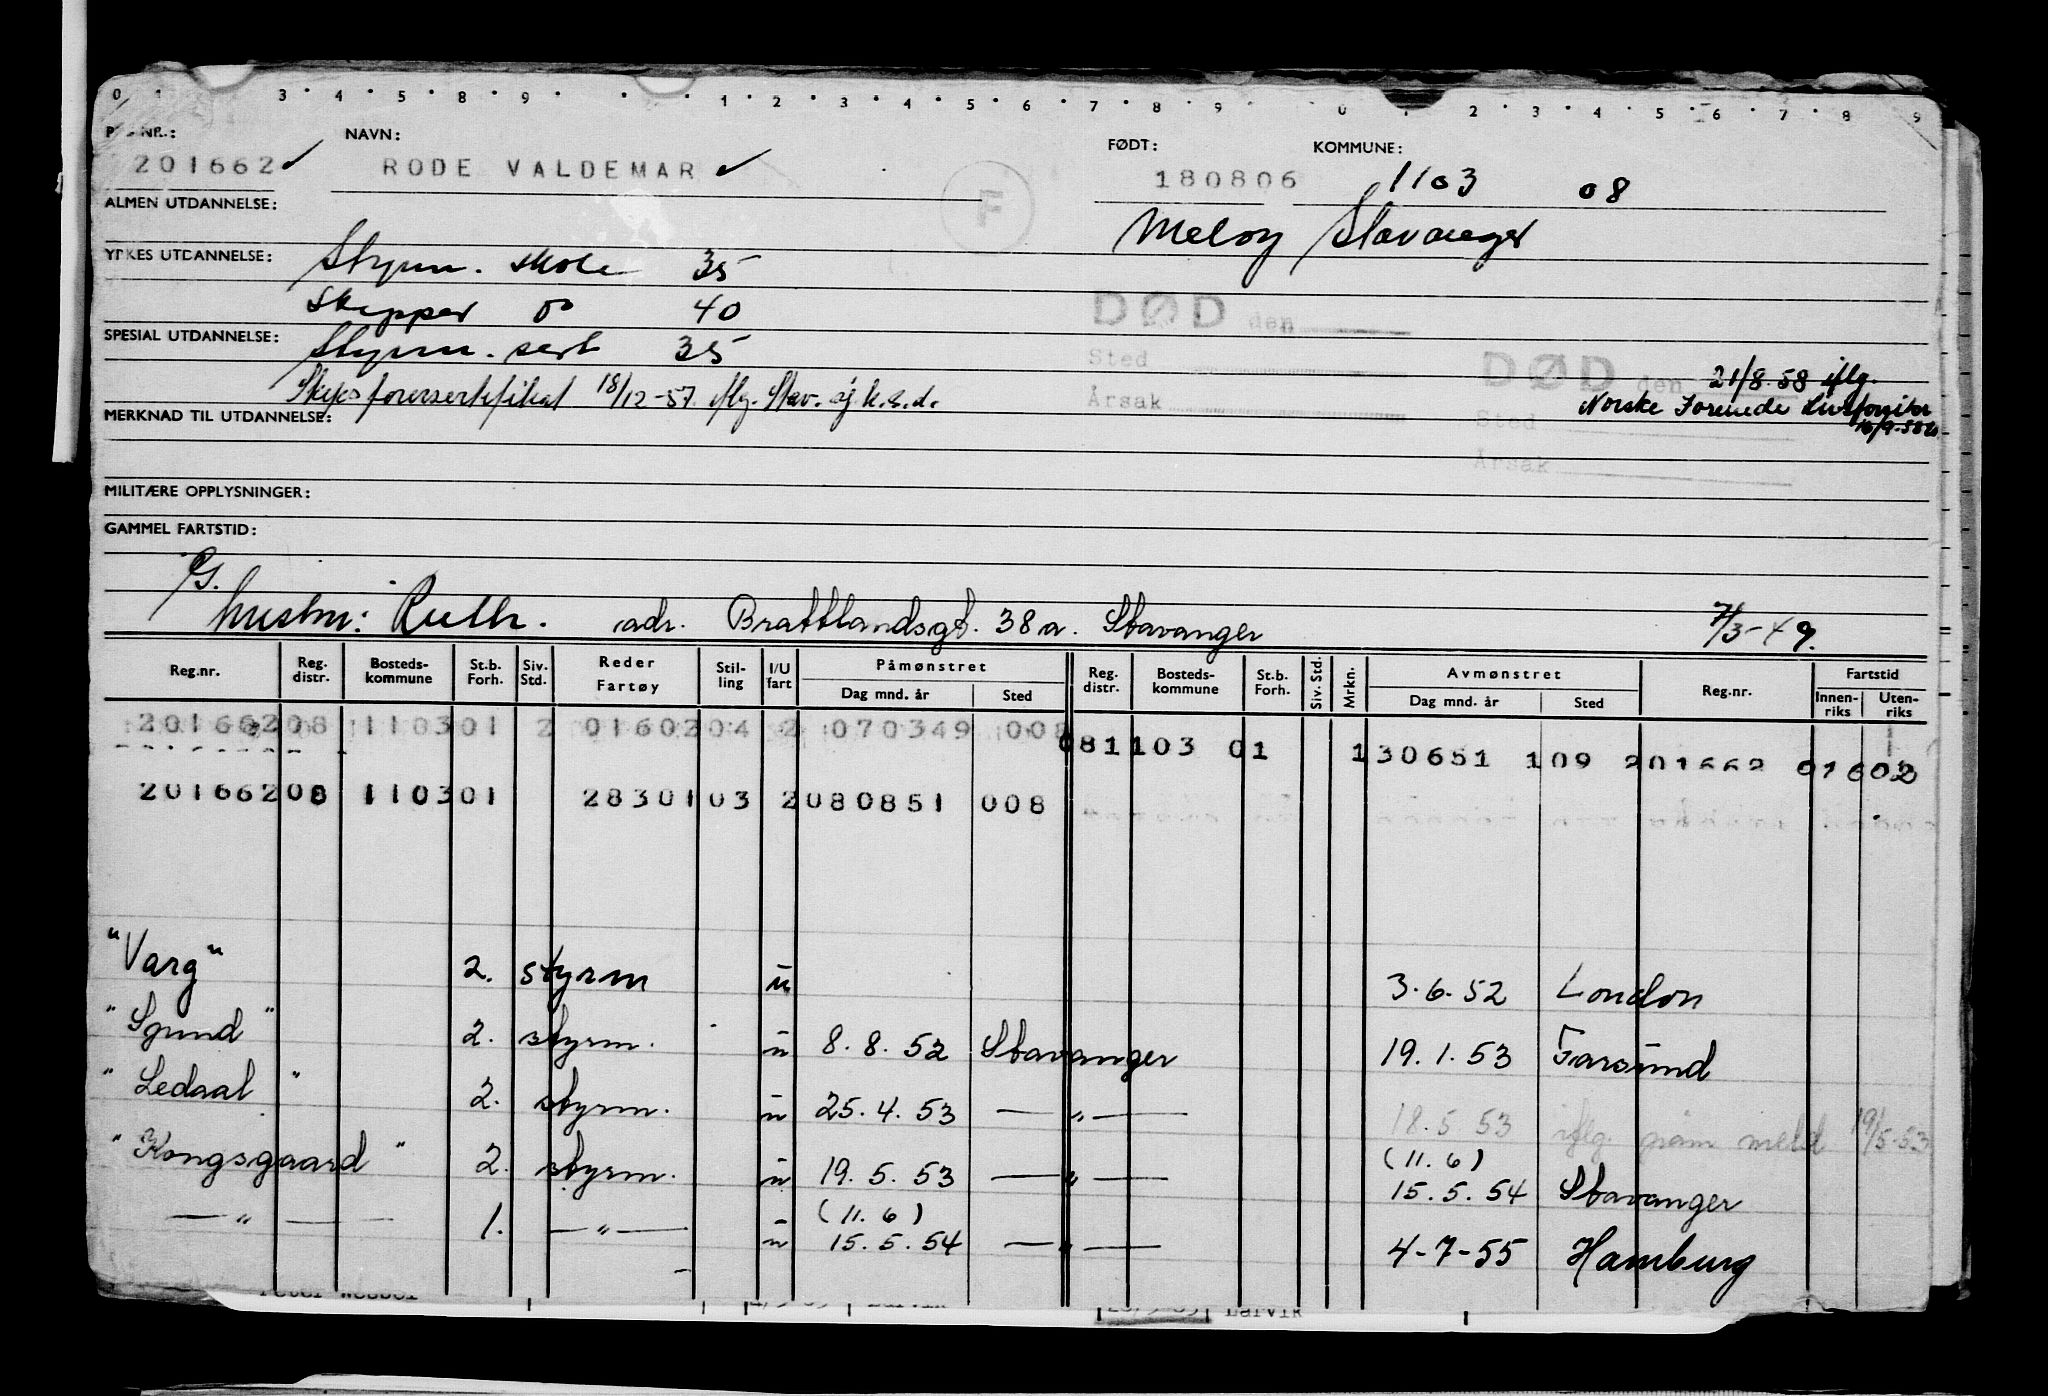 0 1 3 4 5 8 9 1 2 3 4 5 6 7 8 9 0 1 2 3 4 5 6 7 8 9
NR.: NAVN: FØDT: KOMMUNE:
201662 ✓ RODE VALDEMAR ✓ 180806 1103 08
F
ALMEN UTDANNELSE: Meloy Stavanger
YRKES UTDANNELSE: Styrm. skole 35
Skipper do 40
DØD den
SPESIAL UTDANNELSE: Styrm. sert 35
Sted
DØD den 21/8.58 iflg.
Skipsførersertifikat 18/12-57. iflg. Stav. sj.k.s.d.
Årsak
Norske Forenede Livsforsikr
MERKNAD TIL UTDANNELSE:
Sted 16/9-58
Årsak
MILITÆRE OPPLYSNINGER:
GAMMEL FARTSTID:
G.
hustru: Ruth. adr. Brattlandsgt. 38a. Stavanger 7/3-49.
Reg.nr. Reg. distr. Bosteds-kommune St.b. Forh. Siv. Std. Reder Fartøy Stil-ling I/U fart Påmønstret Reg. distr. Bosteds-kommune St.b. Forh. Siv. Std. Mrkn. Avmønstret Reg.nr. Fartstid
Dag mnd. år Sted Dag mnd. år Sted Innen-riks Uten-riks
201662 08 1103 01 2 01602 04 2 070349 008
08 1103 01 130651 109 201662 01602
201662 08 1103 01 28301 03 2 080851 008
"Varg" 2. styrm u 3.6.52 London
"Sgund" 2. styrm. u 8.8.52 Stavanger 19.1.53 Farsund
"Ledaal" 2. styrm. u 25.4.53 — " — 18.5.53 iflg. påm meld 19/5-53
"Kongsgaard" 2. styrm. u 19.5.53 — " — (11.6) 15.5.54 Stavanger
— " — 1. — " — u (11.6) 15.5.54 — " — 4-7-55 Hamburg